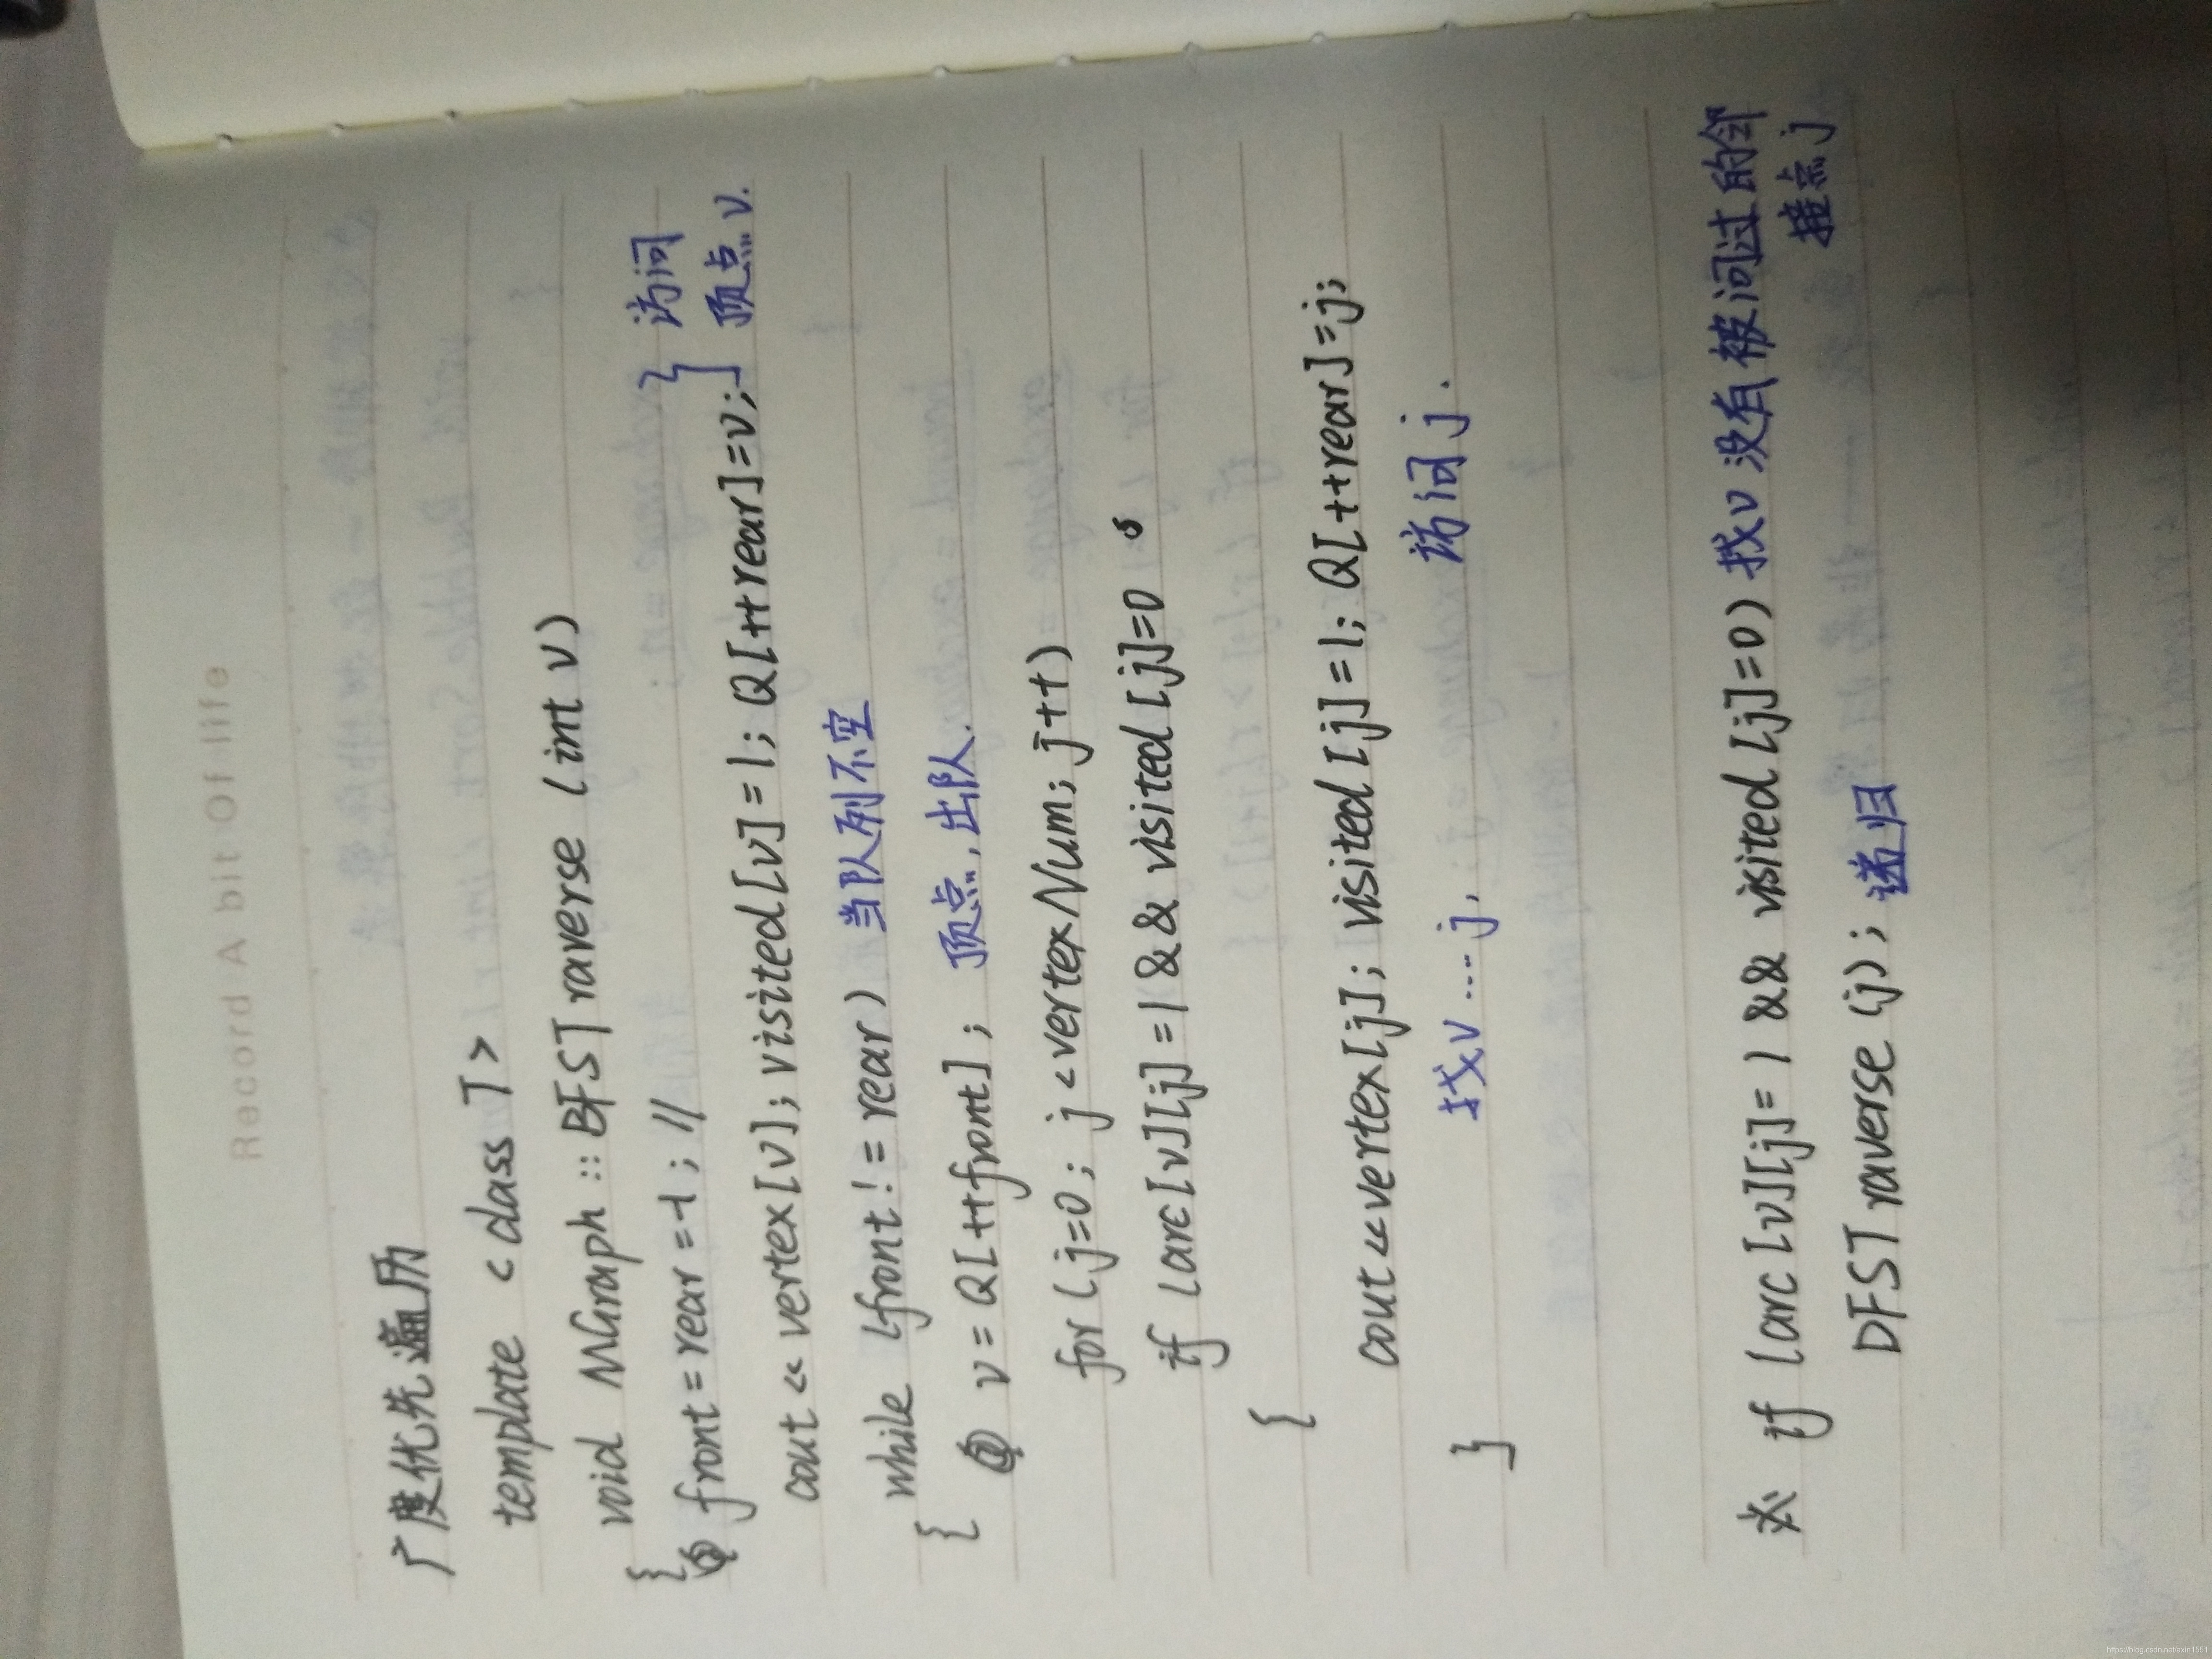 Record A bit Of life
广度优先遍历
template <class T>
void MGraph :: BFSTraverse (int v)
{ front = rear = -1; // } 访问
cout << vertex[v]; visited[v] = 1; Q[++rear] = v; } 顶点 v.
while (front != rear) 当队列不空
{ v = Q[++front]; 顶点,出队.
for (j=0; j<vertexNum; j++)
if (arc[v][j] = 1 && visited[j] = 0
{
cout << vertex[j]; visited[j] = 1; Q[++rear] = j;
找v....j, 访问 j.
}
※ if (arc[v][j] = 1 && visited[j] = 0) 找v 没有被问过的邻
接点 j
DFSTraverse (j); 递归
https://blog.csdn.net/axin1551